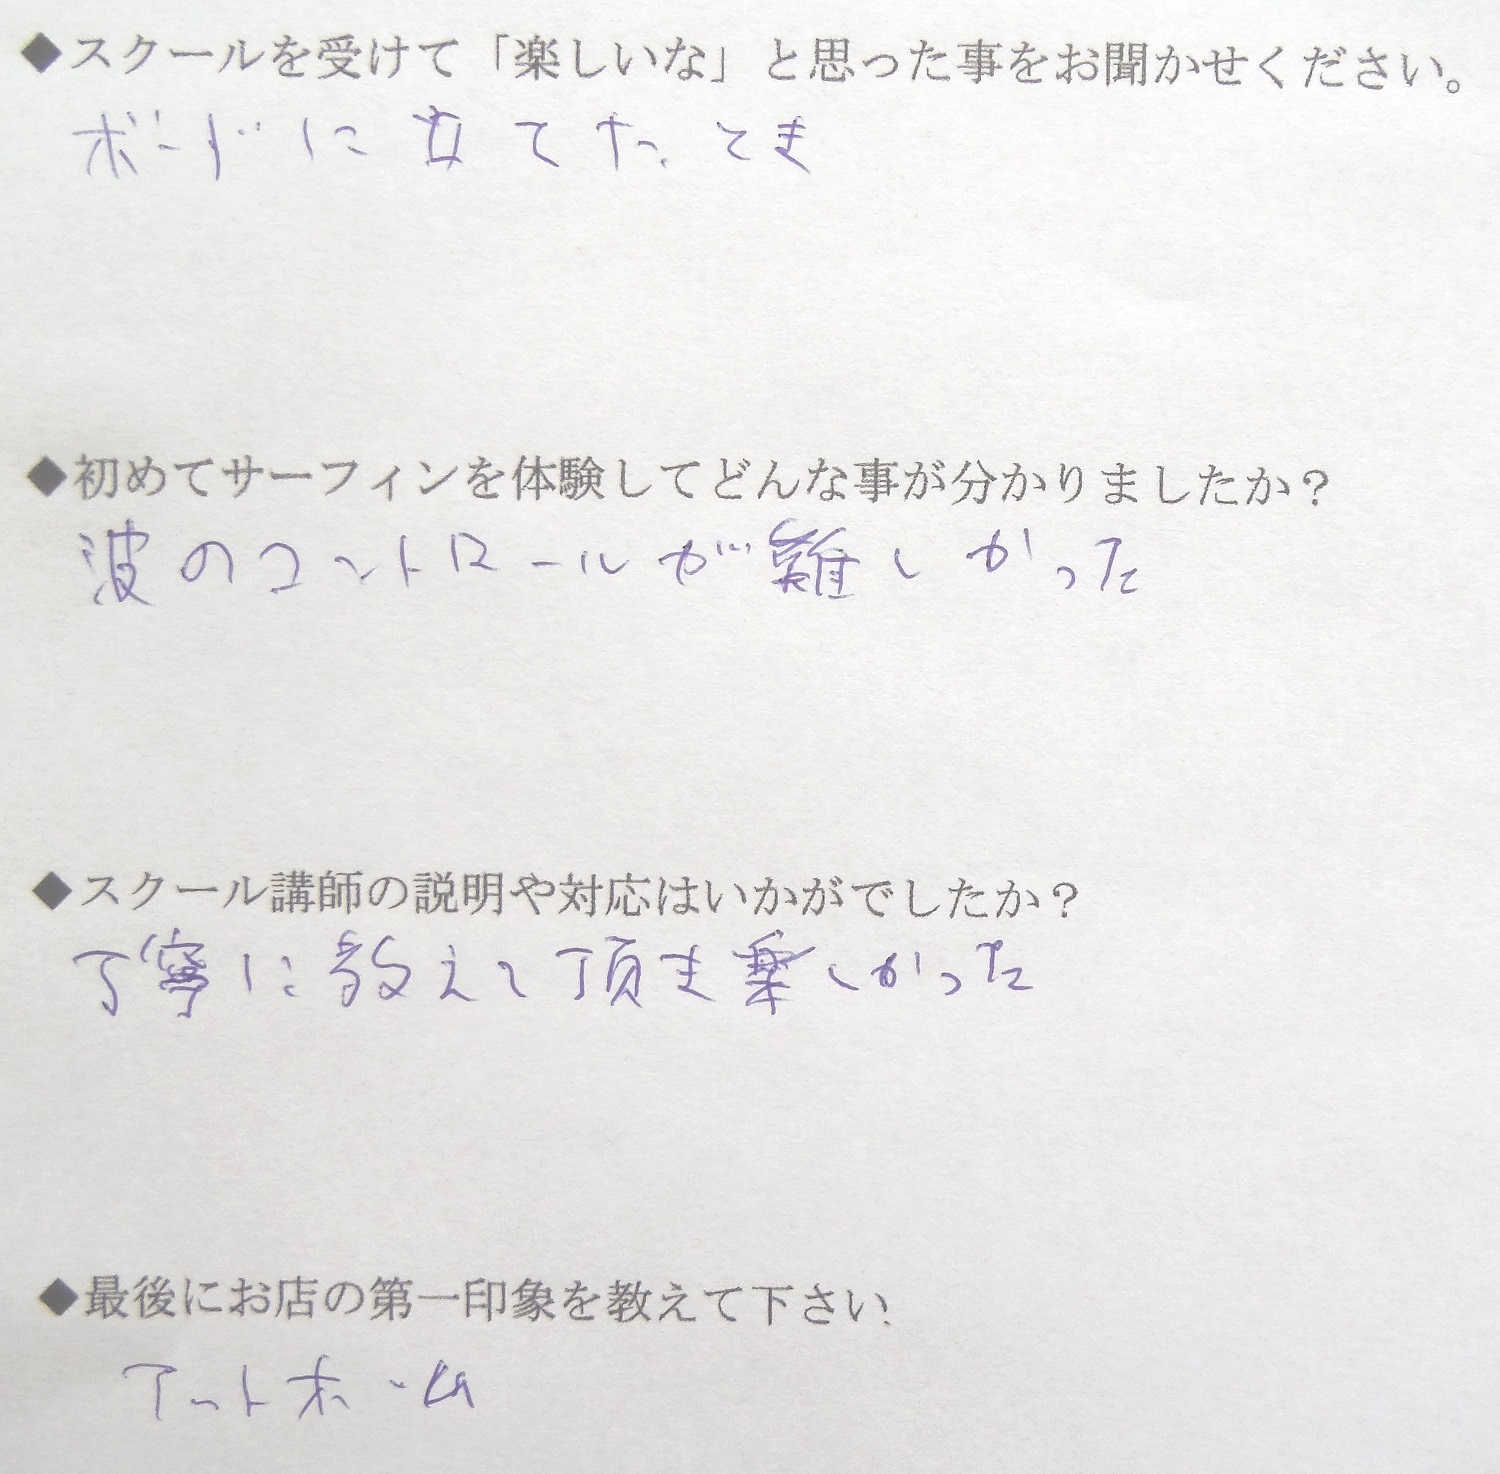 ◆スクールを受けて「楽しいな」と思った事をお聞かせください。
ボードに立てたとき
◆初めてサーフィンを体験してどんな事が分かりましたか？
波のコントロールが難しかった
◆スクール講師の説明や対応はいかがでしたか？
丁寧に教えて頂き楽しかった
◆最後にお店の第一印象を教えて下さい.
アットホーム